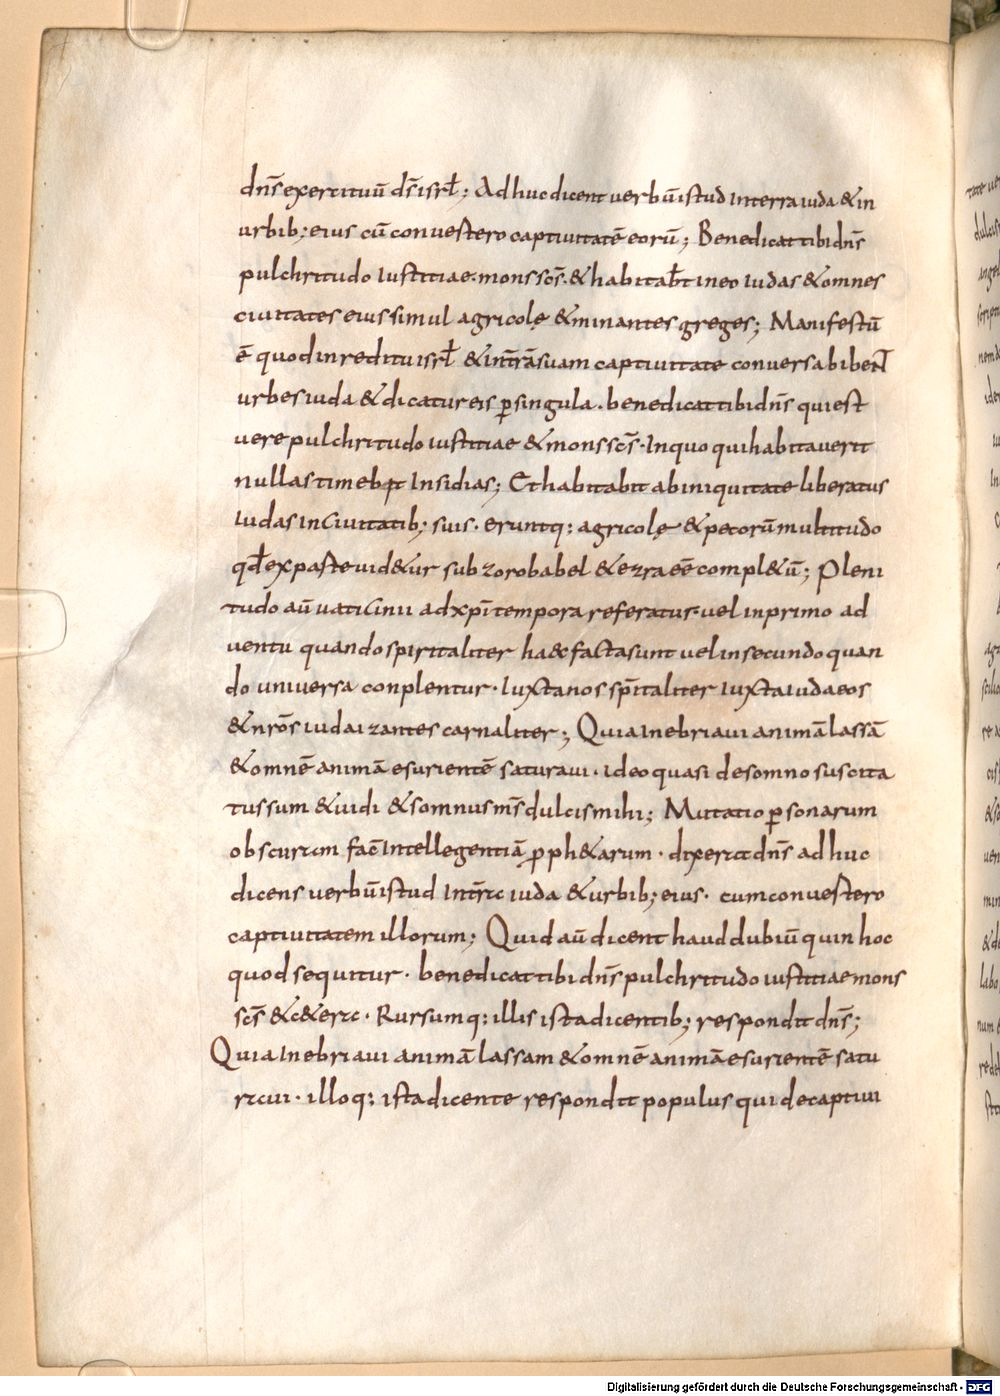 dn̄s exercituū ds̄ isrl̄; Ad huc dicent uerbū istud In terra iuda & in
urbib; eius cū conuestero captiuitatē eorū; Benedicat tibi dn̄s
pulchritudo Iustitiae. mons scs̄. & habitab̄t in eo Iudas & omnes
ciuitates eius simul agricolę & minantes greges; Manifestū
ē quod in reditu isrl̄ & in tr̄ā suam captiuitate conuersa bibeNT̄
urbes iuda & dicatur eis ꝑ singula. benedicat tibi dn̄s qui est
uere pulchritudo iustitiae & mons scs̄. In quo qui habitauerit
nullas timebit Insidias; Et habitabit ab iniquitate liberatus
Iudas In Ciuitatib; suis. eruntq; agricolę & pecorū multitudo
qd̄ ex paste uid&ur sub zorobabel & ezra eē compl&ū; Pleni
tudo aū uatiCinii ad xp̄i tempora referatur. uel in primo ad
uentu quando spiritaliter haec facta sunt uel in secundo quan
do uniuersa conplentur. Iuxta nos sp̄italiter Iuxta Iudaeos
& nr̄ōs iudaizantes carnaliter; Quia Inebriaui animā lassā
& omnē animā esurientē saturaui. ideo quasi de somno suscita
tus sum & uidi & somnus ms̄ dulcis mihi; Mutatio ꝑsonarum
obscuram fac̄ Intellegentiā ꝓph&arum. dixerat dn̄s ad huc
dicens uerbū istud In tr̄a iuda & urbib; eius. cum conuestero
captiuitatem illorum; Quid aū dicent haud dubiū quin hoc
quod sequitur. benedicat tibi dn̄s pulchritudo iustitiae mons
scs̄ & c&era. Rursumq; illis ista dicentib; respondit dn̄s;
Quia Inebriaui animā lassam & omnē animā esurientē satu
raui. illoq; ista dicente respondit populus qui de captiui
Digitalisierung gefördert durch die Deutsche Forschungsgemeinschaft - DFG